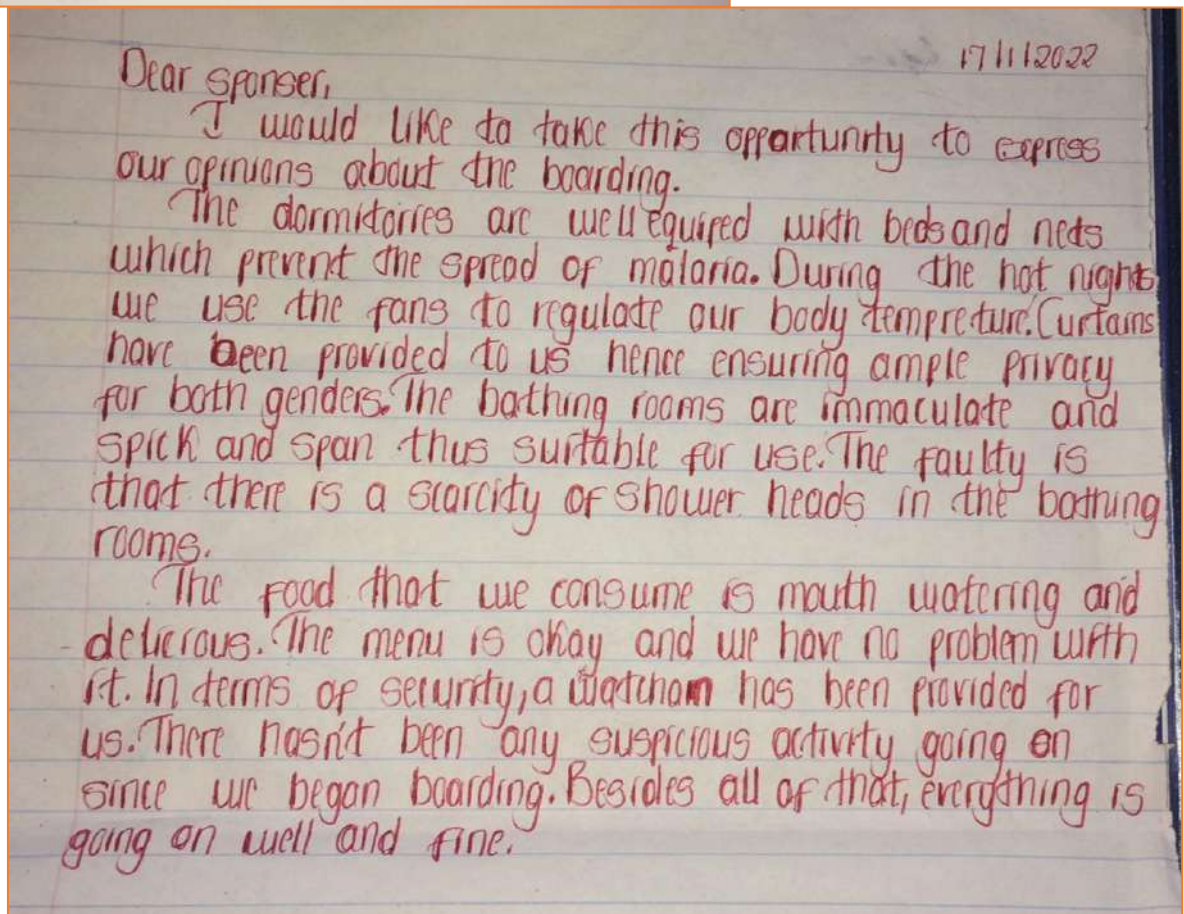 17/1/2022
Dear sponser,
I would like to take this opportunity to express
our opinions about the boarding.
The dormitories are well equiped with beds and nets
which prevent the spread of malaria. During the hot nights
we use the fans to regulate our body tempreture. Curtains
have been provided to us hence ensuring ample privacy
for both genders. The bathing rooms are immaculate and
spick and span thus suitable for use. The faulty is
that there is a scarcity of shower heads in the bathing
rooms.
The food that we consume is mouth watering and
delicious. The menu is okay and we have no problem with
it. In terms of security, a watchman has been provided for
us. There hasn't been any suspicious activity going on
since we began boarding. Besides all of that, everything is
going on well and fine.